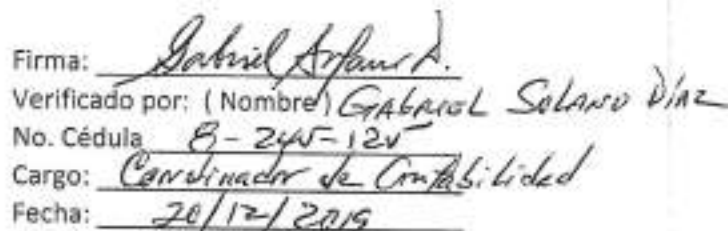 Firma: Gabriel
Verificado por: ( Nombre ) GABRIEL SOLANO DÍAZ
No. Cédula 8-245-125
Cargo: Coordinador de Contabilidad
Fecha: 20/12/2019